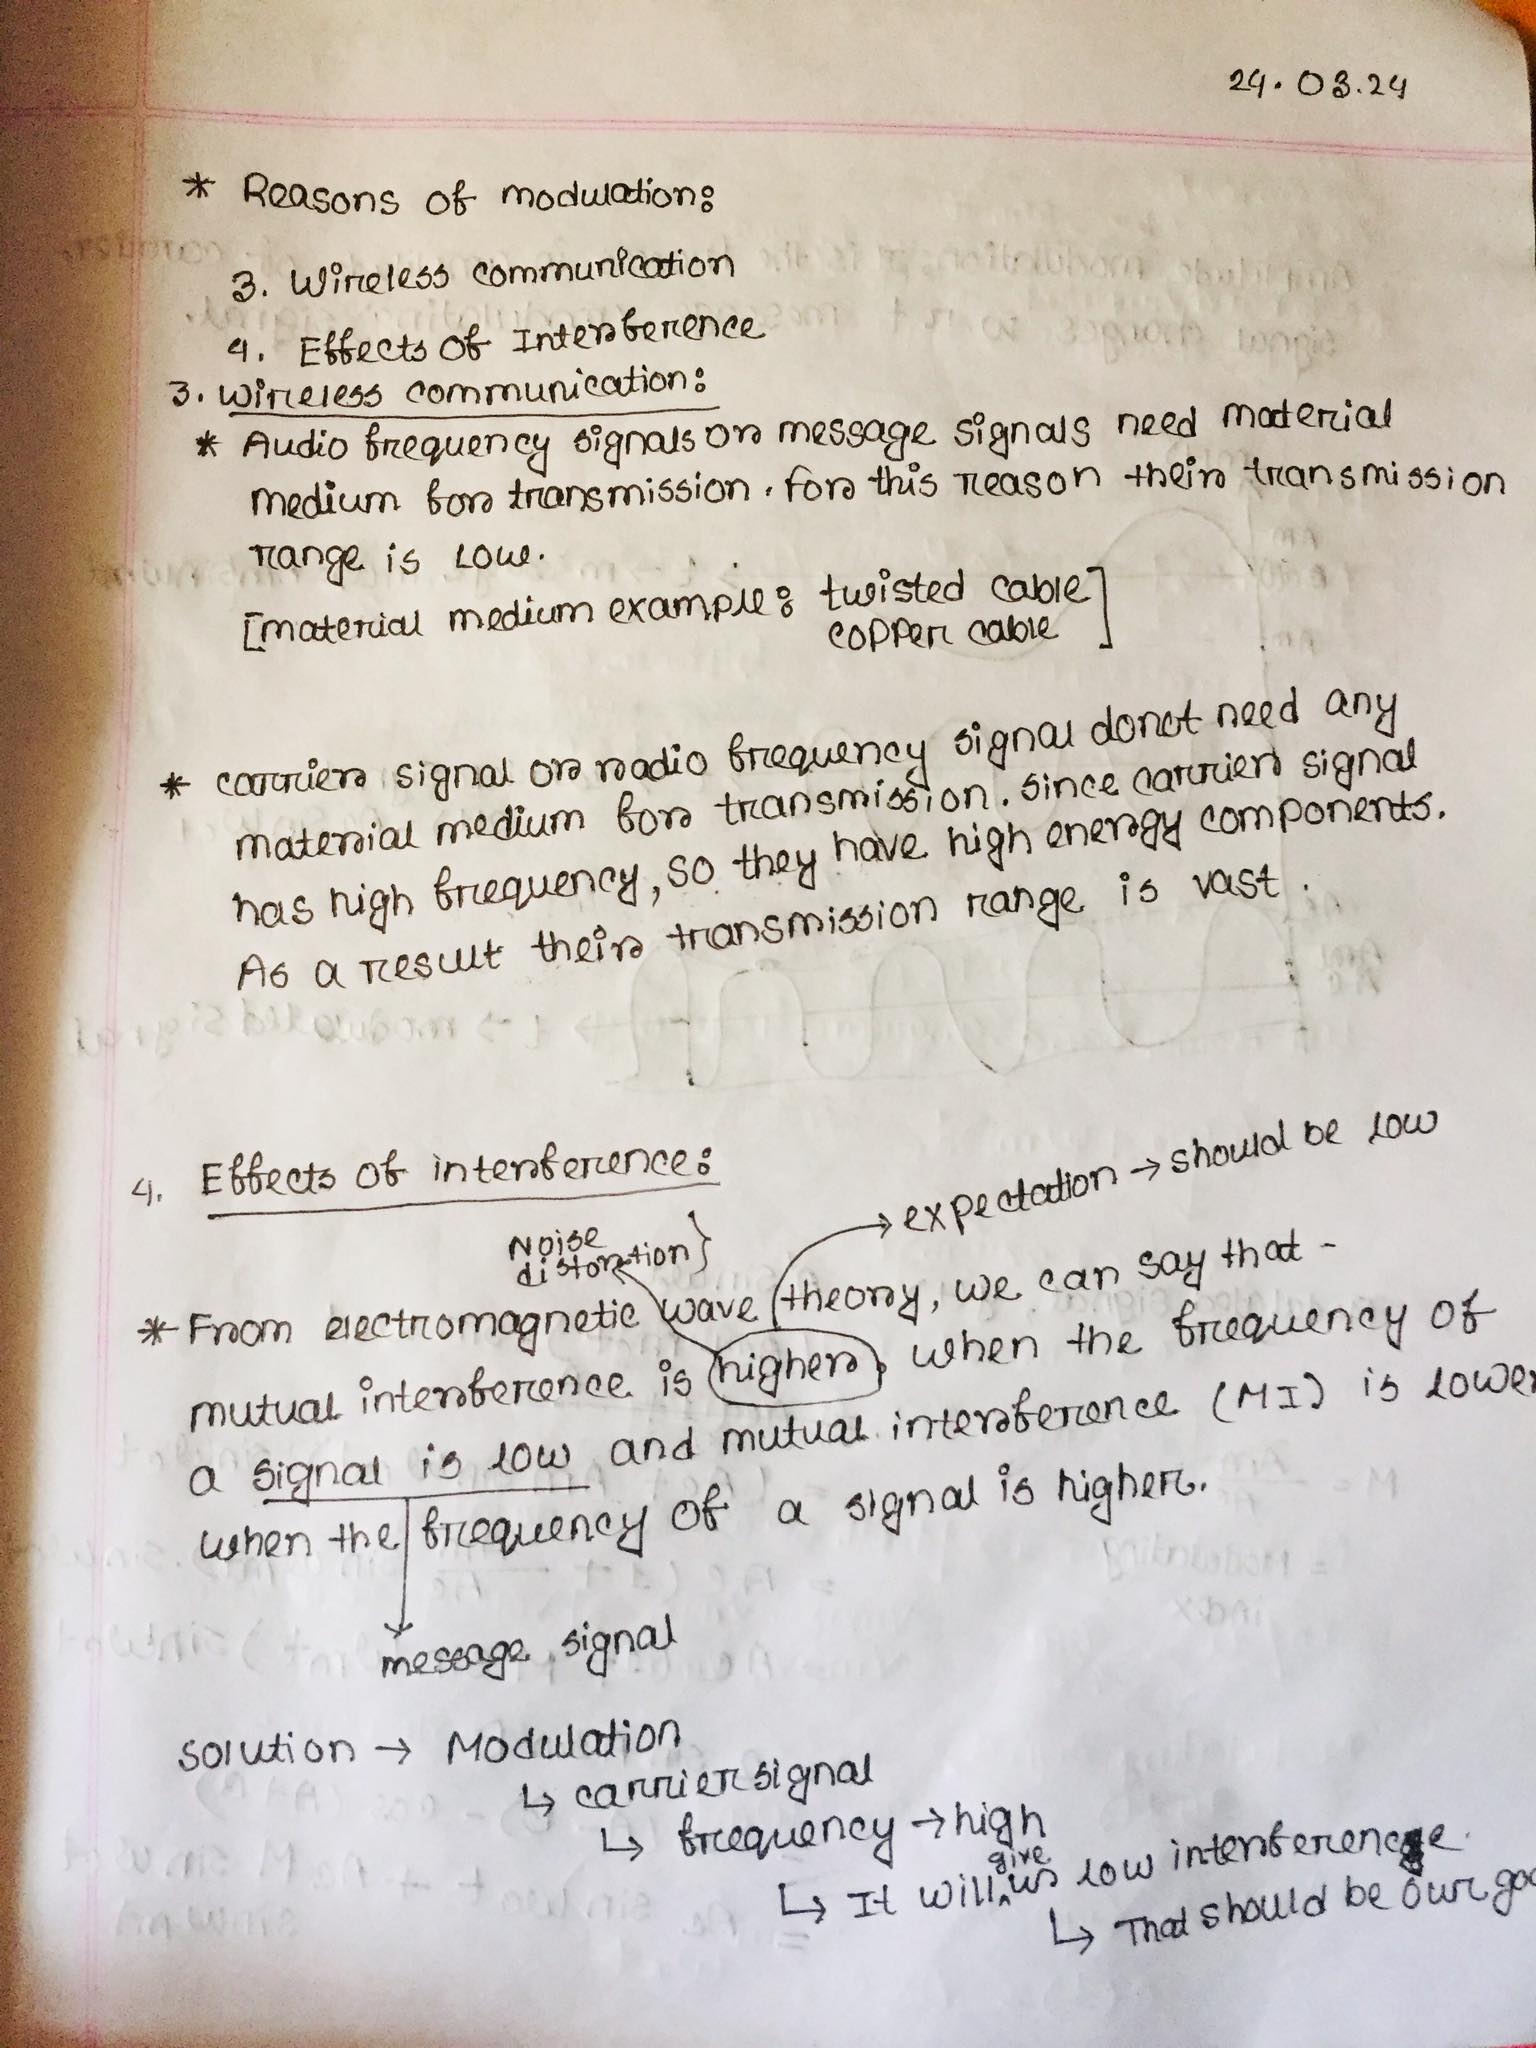 24.03.24
* Reasons of modulation:
3. Wireless communication
4. Effects of Interference
3. Wireless communication:
* Audio frequency signals or message signals need material
medium for transmission. For this reason their transmission
range is low.
[material medium example: twisted cable
copper cable]
* carrier signal or radio frequency signal donot need any
material medium for transmission. Since carrier signal
has high frequency, so they have high energy components.
As a result their transmission range is vast.
4. Effects of interference:
expectation → should be low
Noise
distortion}
* From electromagnetic wave theory, we can say that -
mutual interference is higher, when the frequency of
a signal is low and mutual interference (MI) is lower
when the frequency of a signal is higher.
message signal
Solution → Modulation
↳ carrier signal
↳ frequency → high
↳ It will give us low interference.
↳ That should be our